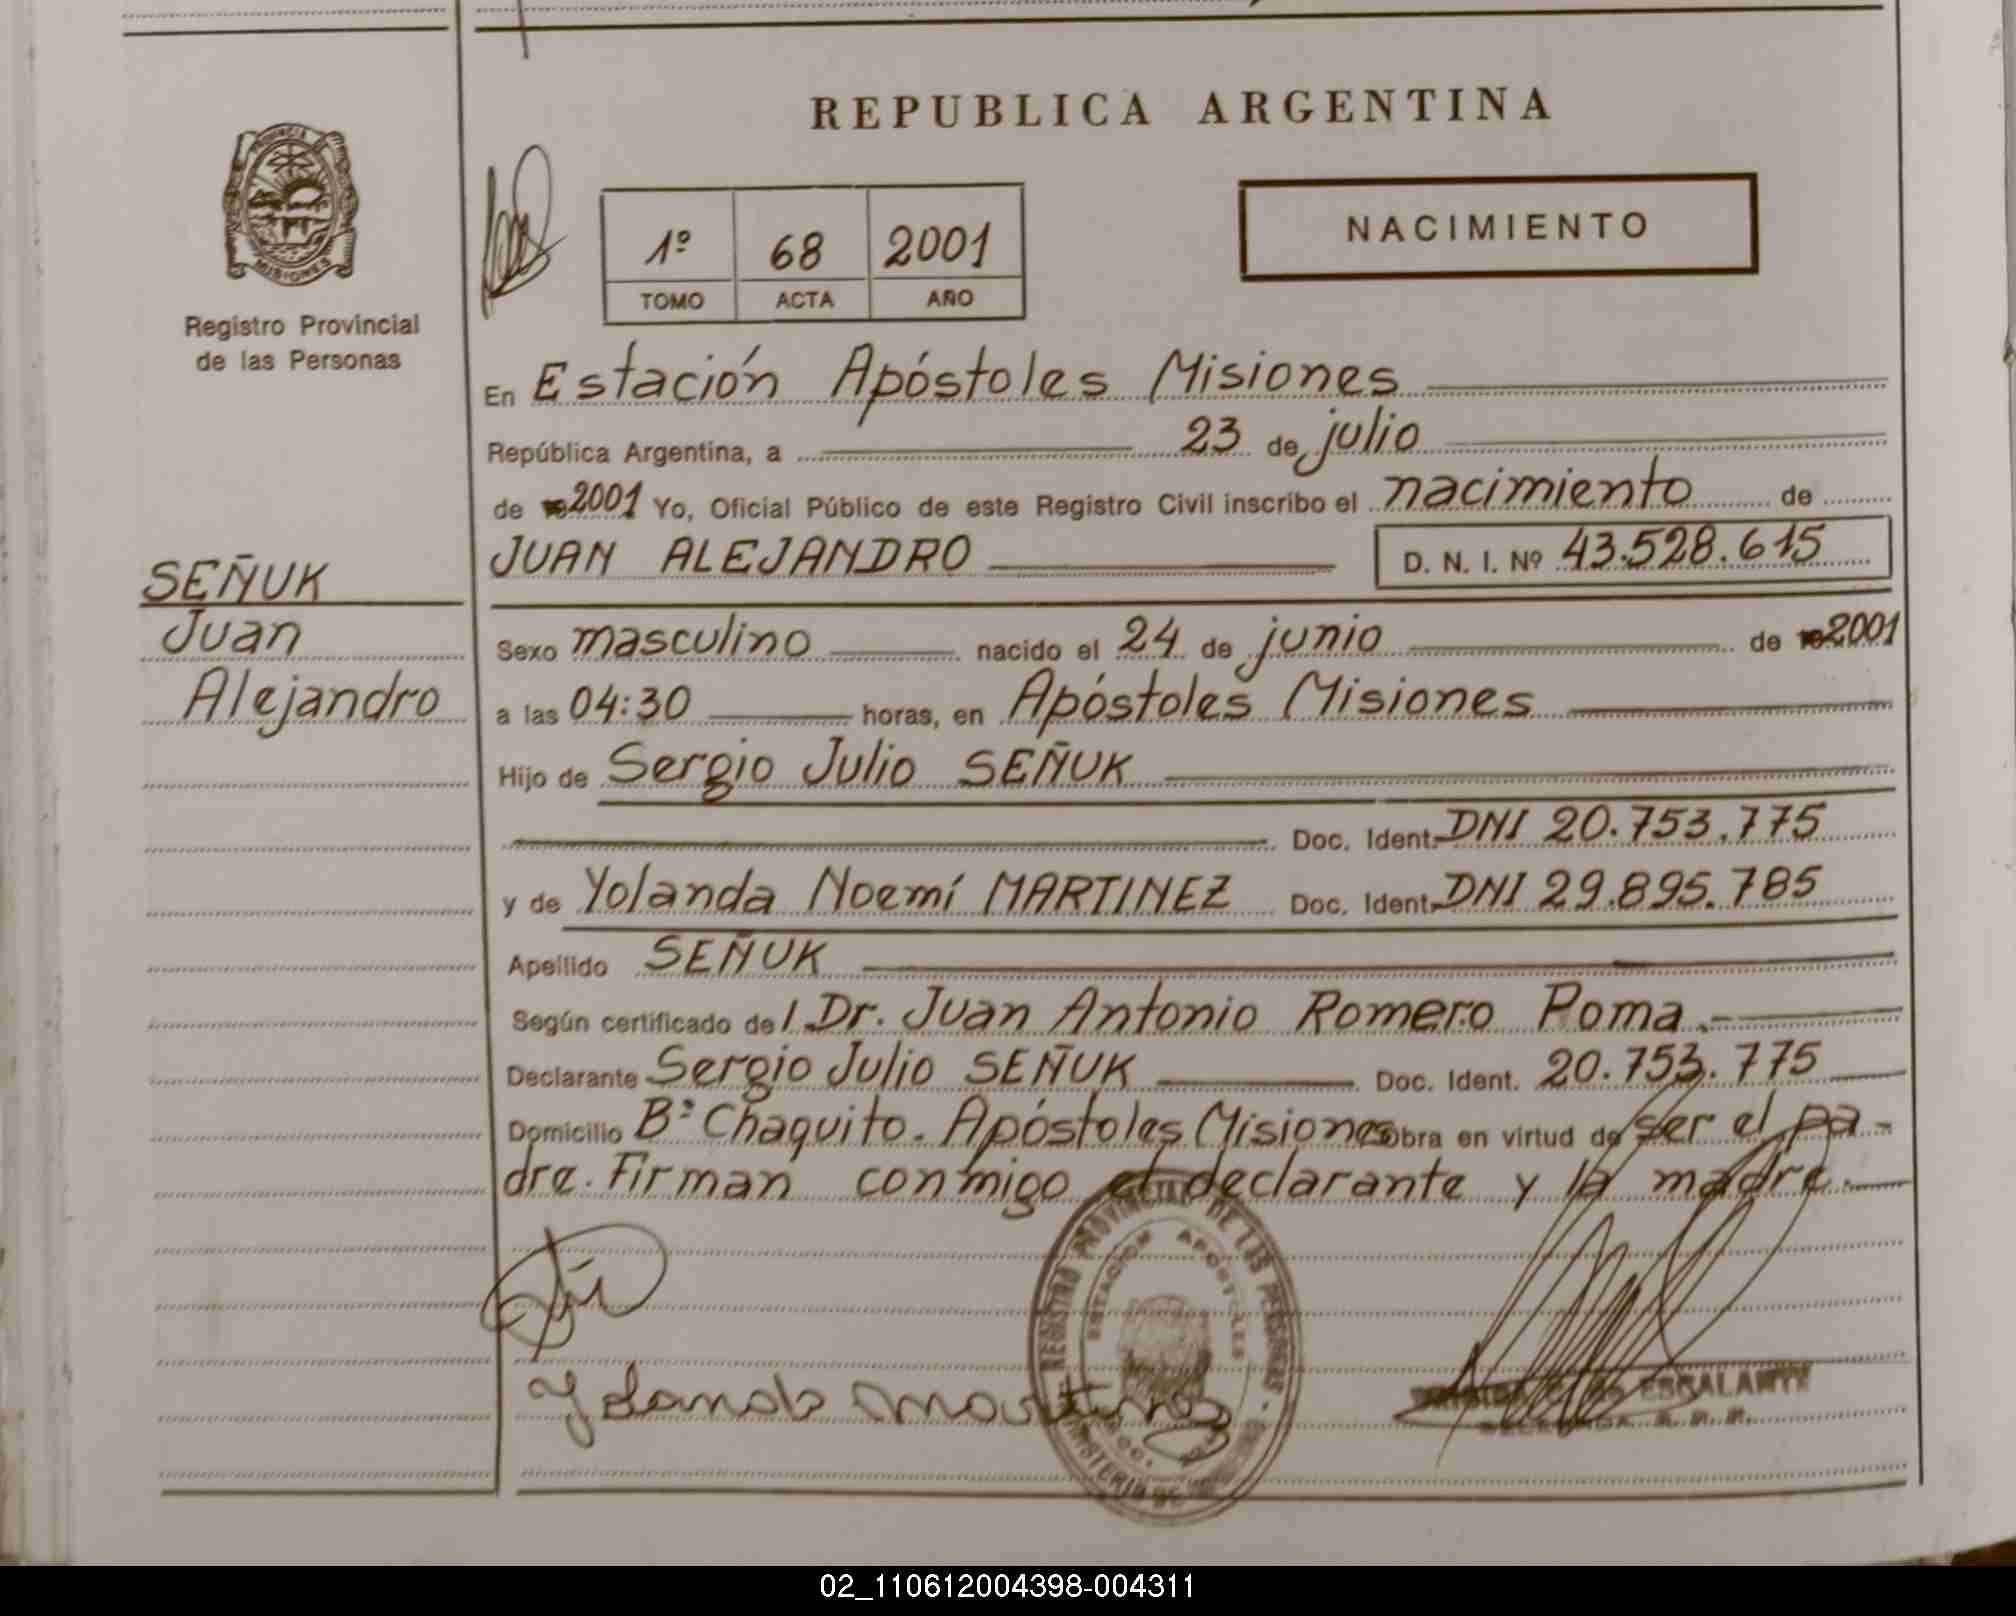 REPUBLICA ARGENTINA
PROVINCIA
MISIONES
Registro Provincial
de las Personas
1º 68 2001
TOMO ACTA AÑO
NACIMIENTO
En Estación Apóstoles Misiones
República Argentina, a 23 de julio
de 2001 Yo, Oficial Público de este Registro Civil inscribo el nacimiento de
JUAN ALEJANDRO D. N. I. Nº 43.528.615
SEÑUK
Juan
Alejandro
Sexo masculino nacido el 24 de junio de 2001
a las 04:30 horas, en Apóstoles Misiones
Hijo de Sergio Julio SEÑUK
Doc. Ident. DNI 20.753.775
y de Yolanda Noemí MARTINEZ Doc. Ident. DNI 29.895.785
Apellido SEÑUK
Según certificado del Dr. Juan Antonio Romero Poma.-
Declarante Sergio Julio SEÑUK Doc. Ident. 20.753.775
Domicilio Bº Chaquito. Apóstoles Misiones obra en virtud de ser el pa-
dre. Firman conmigo el declarante y la madre.
REGISTRO PROVINCIAL DE LAS PERSONAS
ESTACION APOSTOLES
MINISTERIO DE
Yolanda Martinez
ESCALANTE
02_110612004398-004311